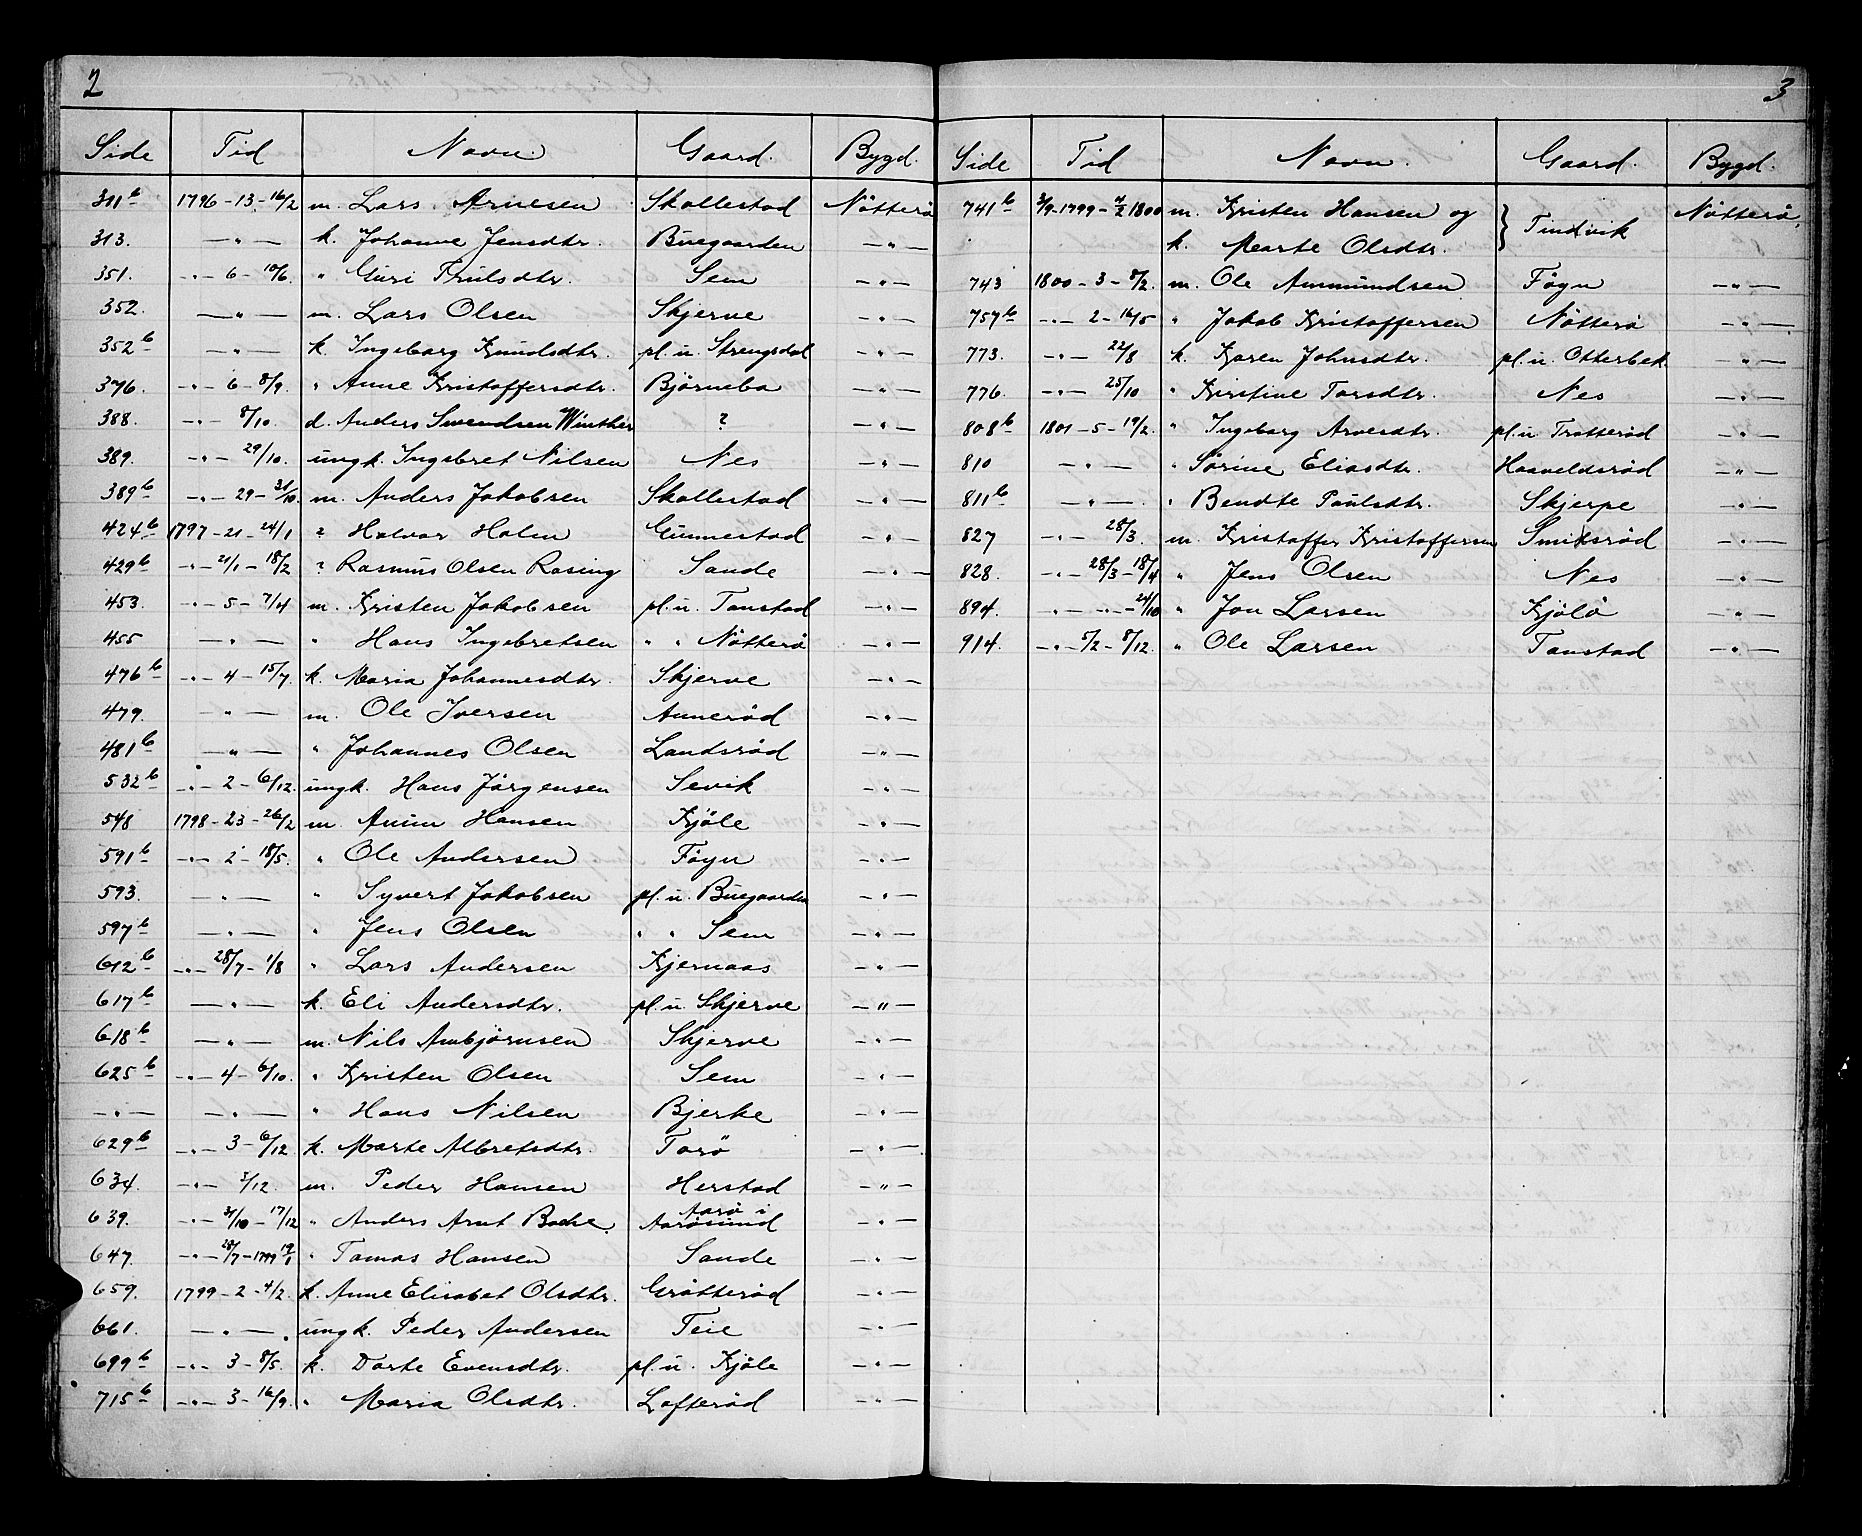 2
Side Tid Navn. Gaard. Bygd.
311b 1796 - 13 - 16/2 m. Lars Arnesen Skallestad Nötterö
313. —„— k. Johanne Jensdtr. Buegaarden —„—
351. —„— 6 - 10/6. „ Guri Trulsdtr. Sem —„—
352. —„— m. Lars Olsen Skjerve —„—
352b —„— k. Ingeborg Knudsdtr. pl. u. Strengsdal —„—
376. —„— 6 - 8/9. „ Anne Kristoffersdtr. Björnebo —„—
388. —„— 8/10. d. Anders Swendsen Winther ? —„—
389. —„— 29/10. ungk. Ingebret Nilsen Nes —„—
389b —„— 29 - 31/10. m. Anders Jakobsen Skallestad —„—
424b 1797 - 21 - 24/1 ? Halvor Holen Gunnestad —„—
429b —„— 21/1 - 18/2 ? Rasmus Olsen Rosing Sande —„—
453. —„— 5 - 7/4 m. Kristen Jakobsen pl. u. Tanstad —„—
455 —„— „ Hans Ingebretsen „ „ Nötterö —„—
476b —„— 4 - 15/7. k. Maria Johannesdtr. Skjerve —„—
479. —„— m. Ole Iversen Annerød —„—
481b —„— „ Johannes Olsen Landsrød —„—
532b —„— 2 - 6/12. ungk. Hans Jörgensen Sevik —„—
548 1798 - 23 - 26/2 m. Anun Hansen Kjöle —„—
591b —„— 2 - 18/5. „ Ole Andersen Föyn —„—
593. —„— „ Syvert Jakobsen pl. u. Buegaarden —„—
597b —„— „ Jens Olsen „ „ Sem —„—
612b —„— 28/7 - 1/8 „ Lars Andersen Kjernaas —„—
617b —„— k. Eli Andersdtr. pl. u. Skjerve —„—
618b —„— m. Nils Anbjörnsen Skjerve —„—
625b —„— 4 - 6/10. „ Kristen Olsen Sem —„—
—„— —„— „ Hans Nilsen Bjerke —„—
629b —„— 3 - 6/12 k. Marte Albretsdtr. Torö —„—
634. —„— 7/12. m. Peder Hansen Herstad —„—
639. —„— 31/10 - 17/12 „ Anders Arnt Boche Aarö i Aarösund —„—
647. —„— 28/7 - 1799 19/1 „ Tomas Hansen Sande —„—
659. 1799 - 2 - 4/2. k. Anne Elisabet Olsdtr. Gråtterød —„—
661. —„— ungk. Peder Andersen Teie —„—
699b —„— 3 - 8/5. k. Dorte Evensdtr. pl. u. Kjöle —„—
715b —„— 3 - 16/9. „ Maria Olsdtr. Lofterød —„—
3
Side Tid Navn. Gaard. Bygd.
741b 3/9 - 1799 - 4/2 1800 m. Kristen Hansen og } Tindvik Nötterö
k. Marte Olsdtr.
743 1800 - 3 - 8/2. m. Ole Ammundsen Föyn —„—
757b —„— 2 - 16/5 „ Jakob Kristoffersen Nötterö —„—
773. —„— 22/8 k. Karen Johnsdtr. pl. u. Otterbek —„—
776. —„— 25/10 „ Kirstine Torsdtr. Nes —„—
808b 1801 - 5 - 19/2. „ Ingeborg Arvesdtr. pl. u. Trotterød —„—
810 —„— „ Sörine Eliasdtr. Haaveldsrød —„—
811b —„— „ Bendte Paulsdtr. Skjerpe —„—
827 —„— 28/3. m. Kristoffer Kristoffersen Smidsrød —„—
828. —„— 28/3 - 18/4 „ Jens Olsen Nes —„—
894. —„— „ - 24/10 „ Jon Larsen Kjölö —„—
914. —„— 5/2 - 8/12. „ Ole Larsen Tanstad —„—